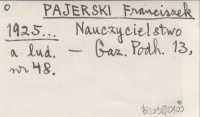 o PAJERSKI Franciszek
1925... Nauczycielstwo
a lud. — Gaz. Podh. 13,
nr 48.